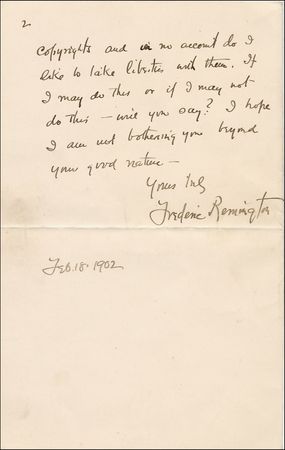 2
copyrights and on no account do I
like to take liberties with them. If
I may do this or if I may not
do this — will you say? I hope
I am not bothering you beyond
your good nature —
Yours truly
Frederic Remington
Feb. 18. 1902